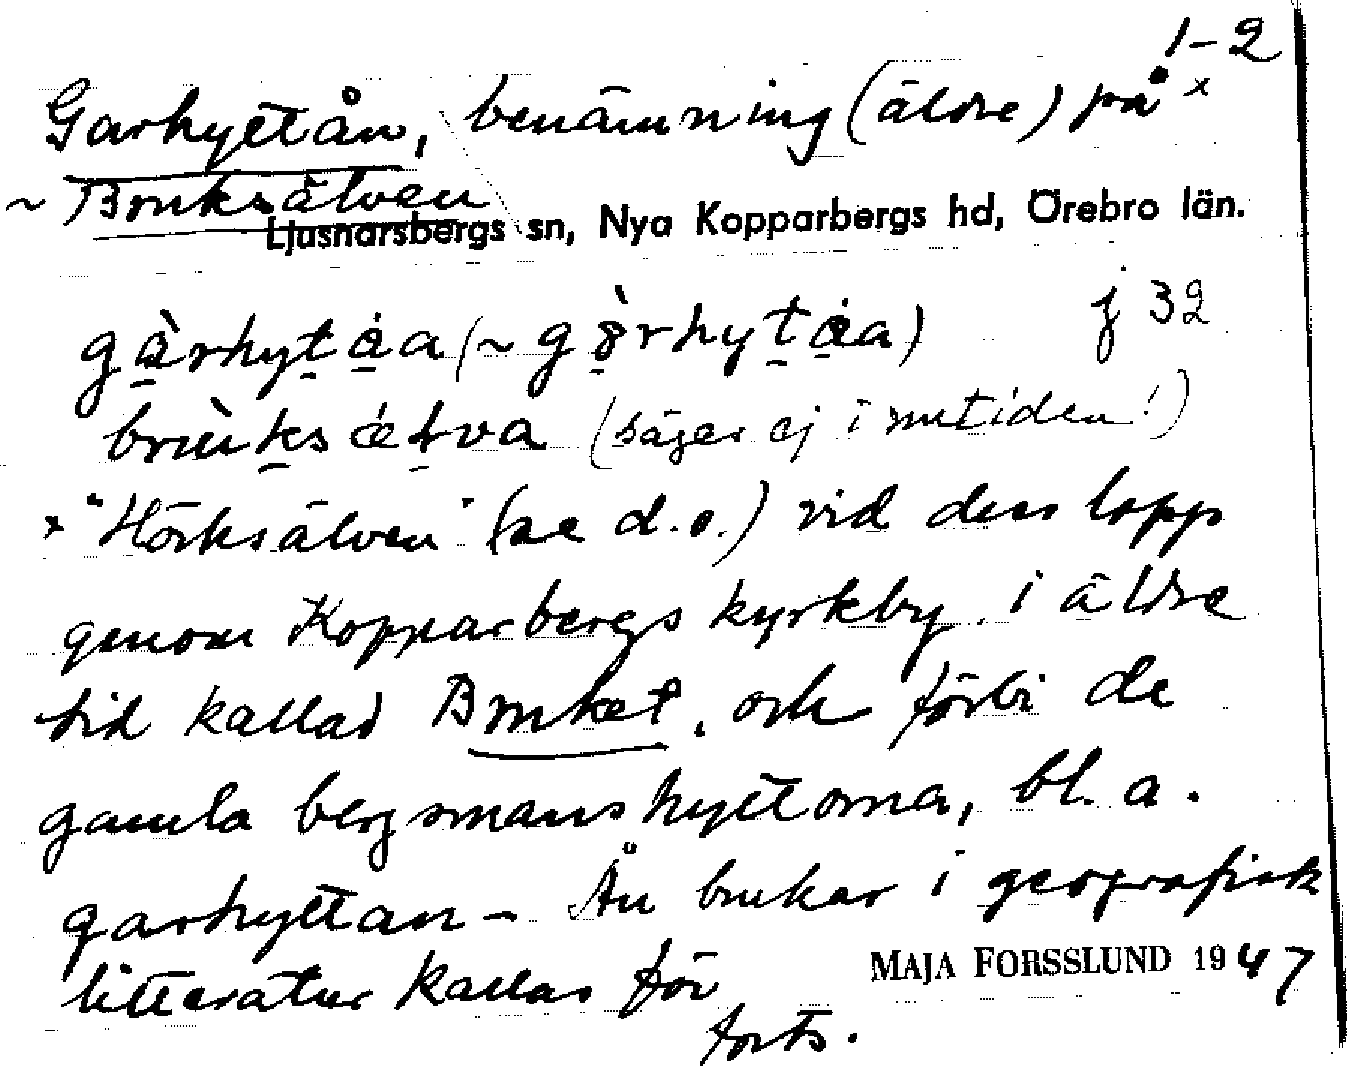 1-2
Garhyttån, benämning (äldre) på x
~ Bruksälven
Ljusnarsbergs sn, Nya Kopparbergs hd, Örebro län.
j 32
(säges ej i nutiden!)
x "Hörksälven" (se d.o.) vid dess lopp
genom Kopparbergs kyrkby, i äldre
tid kallad Bruket, och förbi de
gamla bergsmanshyttorna, bl. a.
garhyttan – Ån brukar i geografisk
litteratur kallas för
MAJA FORSSLUND 1947
forts.